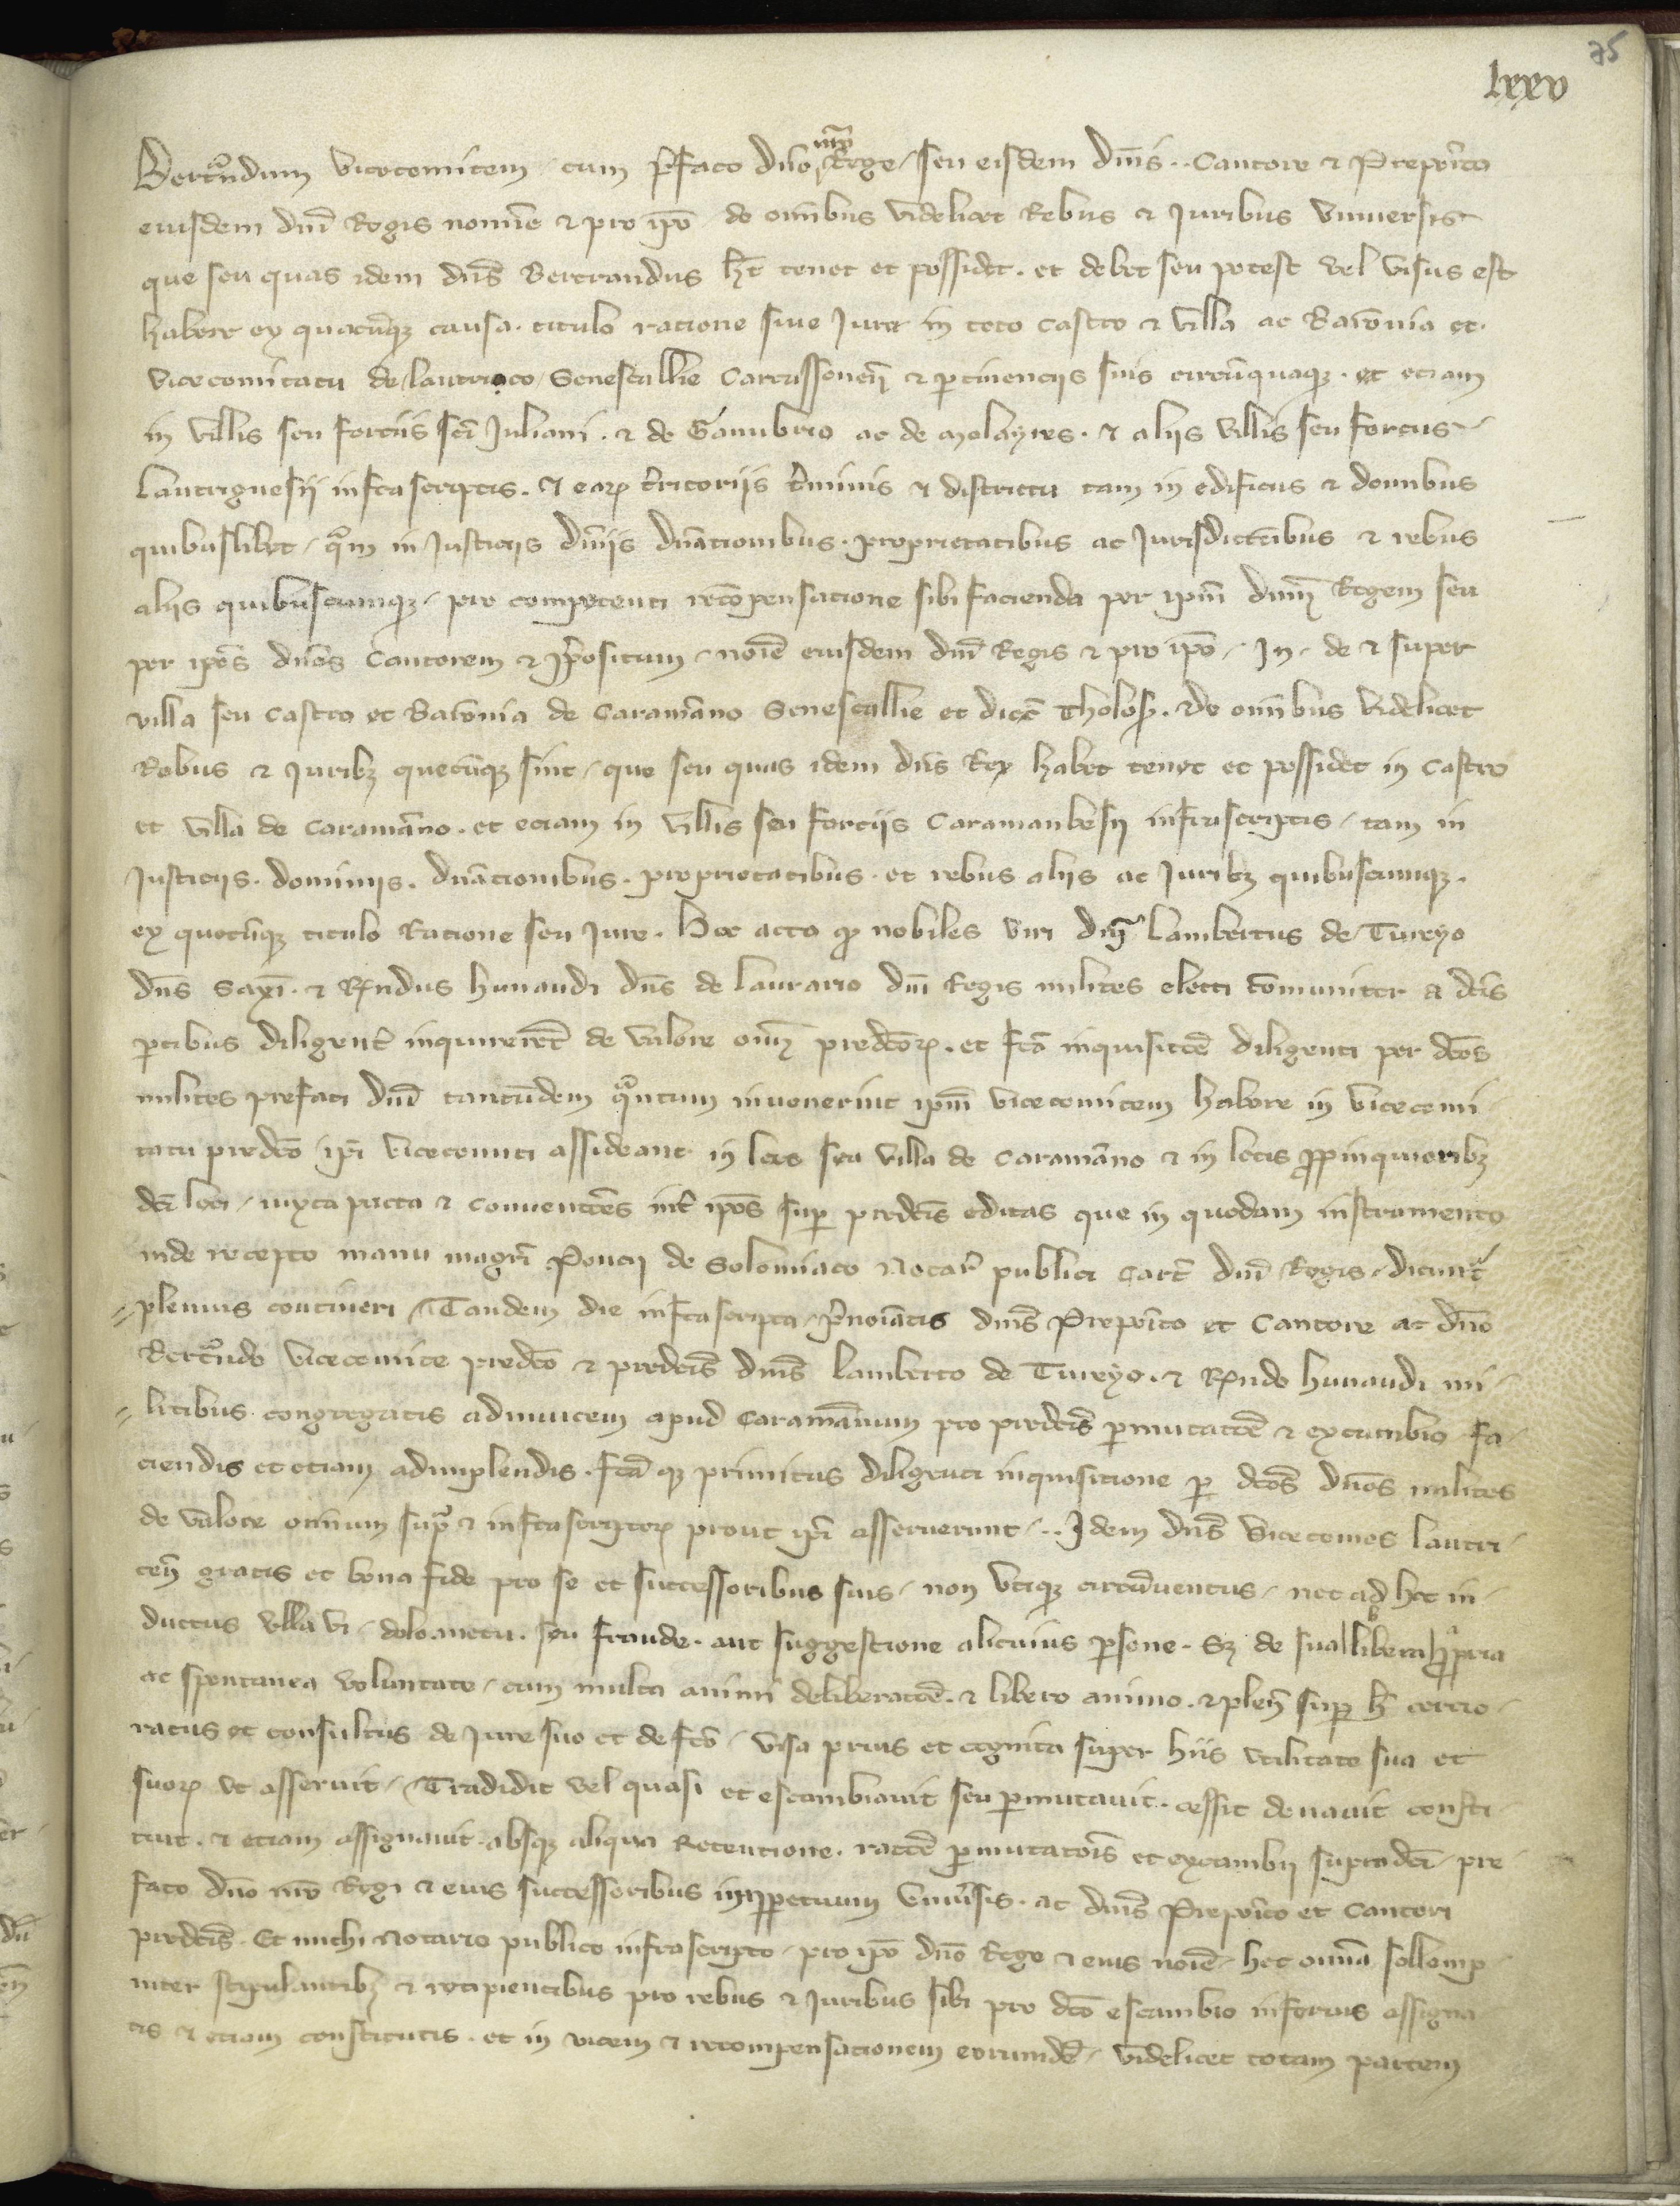 75
lxxv
Bertrandum vicecomitem / cum p̄fato dn̄o nr̄o Rege / seu eisdem dn̄is .. Cantore & Preposito
eiusdem dn̄i Regis nomine & pro ip̄o de om̄ibus videlicet Rebus & Iuribus vniversis
que seu quas idem dn̄s Bertrandus h̄t tenet et possidet . et debet seu potest vel visus est
habere ex quacūq; causa . titulo racione siue Iure in toto castro & villa ac Baronia et
vicecomitatu de lautrico / Senescallie Carcassonen̄ & ꝑtinenciis suis circūquaq; . et etiam
in villis seu forciis sc̄i Iuliani . & de Ganubrio ac de molayres . & aliis villis seu forciis
lautriguesii infrascriptis . & eoꝝ t̄ritoriis t̄minis & districtu tam in edificiis & domibus
quibuslibet / qͣm in Iusticiis dn̄iis dn̄acionibus . proprietatibus ac Iurisdiccōibus & rebus
aliis quibuscumq; / pro competenti recōpensacione sibi facienda per ip̄m dn̄m Regem seu
per ip̄os dn̄os Cantorem & p̄positum / noīe eiusdem dn̄i Regis & pro ip̄o / In / de & super
villa seu castro et Baronia de Caramāno Senescallie et dioc̄ Tholos̄ . de om̄ibus videlicet
Rebus & Iurib; quecūq; sint / que seu quas idem dn̄s Rex habet tenet et possidet in castro
et villa de Caramāno . et etiam in villis seu forciis Caramanhesii infrascriptis / tam in
Iusticiis . dominiis . dn̄acionibus . proprietatibus . et rebus aliis ac Iurib; quibuscumq; .
ex quocūq; titulo Racione seu Iure . Hoc acto ꝙ nobiles viri dn̄i lambertus de Tureyo
dn̄s Saxi . & R̄mundus hunaudi dn̄s de laurario dn̄i Regis milites electi cōmuniter a dc̄is
ꝑtibus diligent̄ inquirerēt de valore om̄i predc̄oꝝ . et fc̄a inquisicōe diligenti per dc̄os
milites prefati dn̄i tantundem qͣntum invenerint ip̄m vicecomitem habere in vicecomi
tatu predc̄o ip̄i vicecomiti assideant in loc̄is seu villa de Caramāno & in locis ꝓpinquiorib;
dc̄i loci / iuxta pacta & convencōes int̄ ip̄os suꝑ predc̄is editas que in quodam instrumento
inde recepto manu magr̄i Poncii de Solomiaco Notar̄ publici Carc̄ dn̄i Regis / dicunt̄
plenius contineri / Tandem die infrascripta / p̄noīatis dn̄is Preposito et Cantore ac dn̄o
Bertrando vicecomite predc̄o & predc̄is dn̄is lamberto de Tureyo . & R̄mundo hunaudi mi
litibus congregatis adinuicem apud Caramānum pro predc̄is ꝑmutacōe & excambio fa
ciendis et etiam adimplendis . fc̄aq; primitus diligenti inquisicione ꝑ dc̄os dn̄os milites
de valore omnium supͣ & infrascriptoꝝ prout ip̄i asseruerunt / .. Idem dn̄s vicecomes lautri
cen̄ gratis et bona fide pro se et successoribus suis / non vtiq; circūventus / nec ad hec in
ductus vlla vi / dolo . metu . seu fraude . aut suggestione alicuius ꝑsone . S; de sua libera & ꝓpria
ac spontanea voluntate / cum multa animi deliberacōe . & libero animo . & plen̄ suꝑ h̄ certio
ratus et consultus de Iure suo et de fc̄o / visa prius et cognita super hiis vtilitate sua et
suoꝝ vt asseruit / Tradidit vel quasi et escambiavit seu ꝑmutavit . cessit donavit consti
tuit . & etiam assignavit . absq; aliqua Retencione . racōe ꝑmutacōis et excambii supradc̄i / pre
fato dn̄o nr̄o Regi & eius successoribus inꝑpetuum vniv̄sis . ac dn̄is Preposito et Cantori
predc̄is . Et michi Notario publico infrascripto / pro ip̄o dn̄o Rege & eius noīe / hec omnia sollemp
niter stipulantib; & recipientibus pro rebus & Iuribus sibi pro dc̄o escambio inferius assigna
tis & etiam constitutis . et in vicem & recompensacionem eorumdē / videlicet totam partem